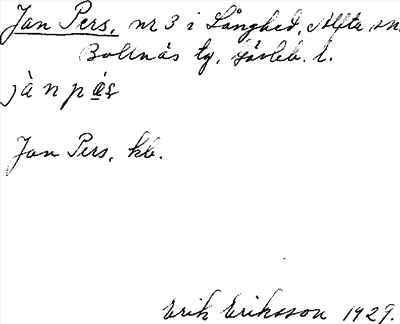 Jan Pers, nr 3 i Långhed, Alfta sn.
Bollnäs tg, Gävleb. l.
jànpæ̀ṣ
Jan Pers, kb.
Erik Eriksson 1929.